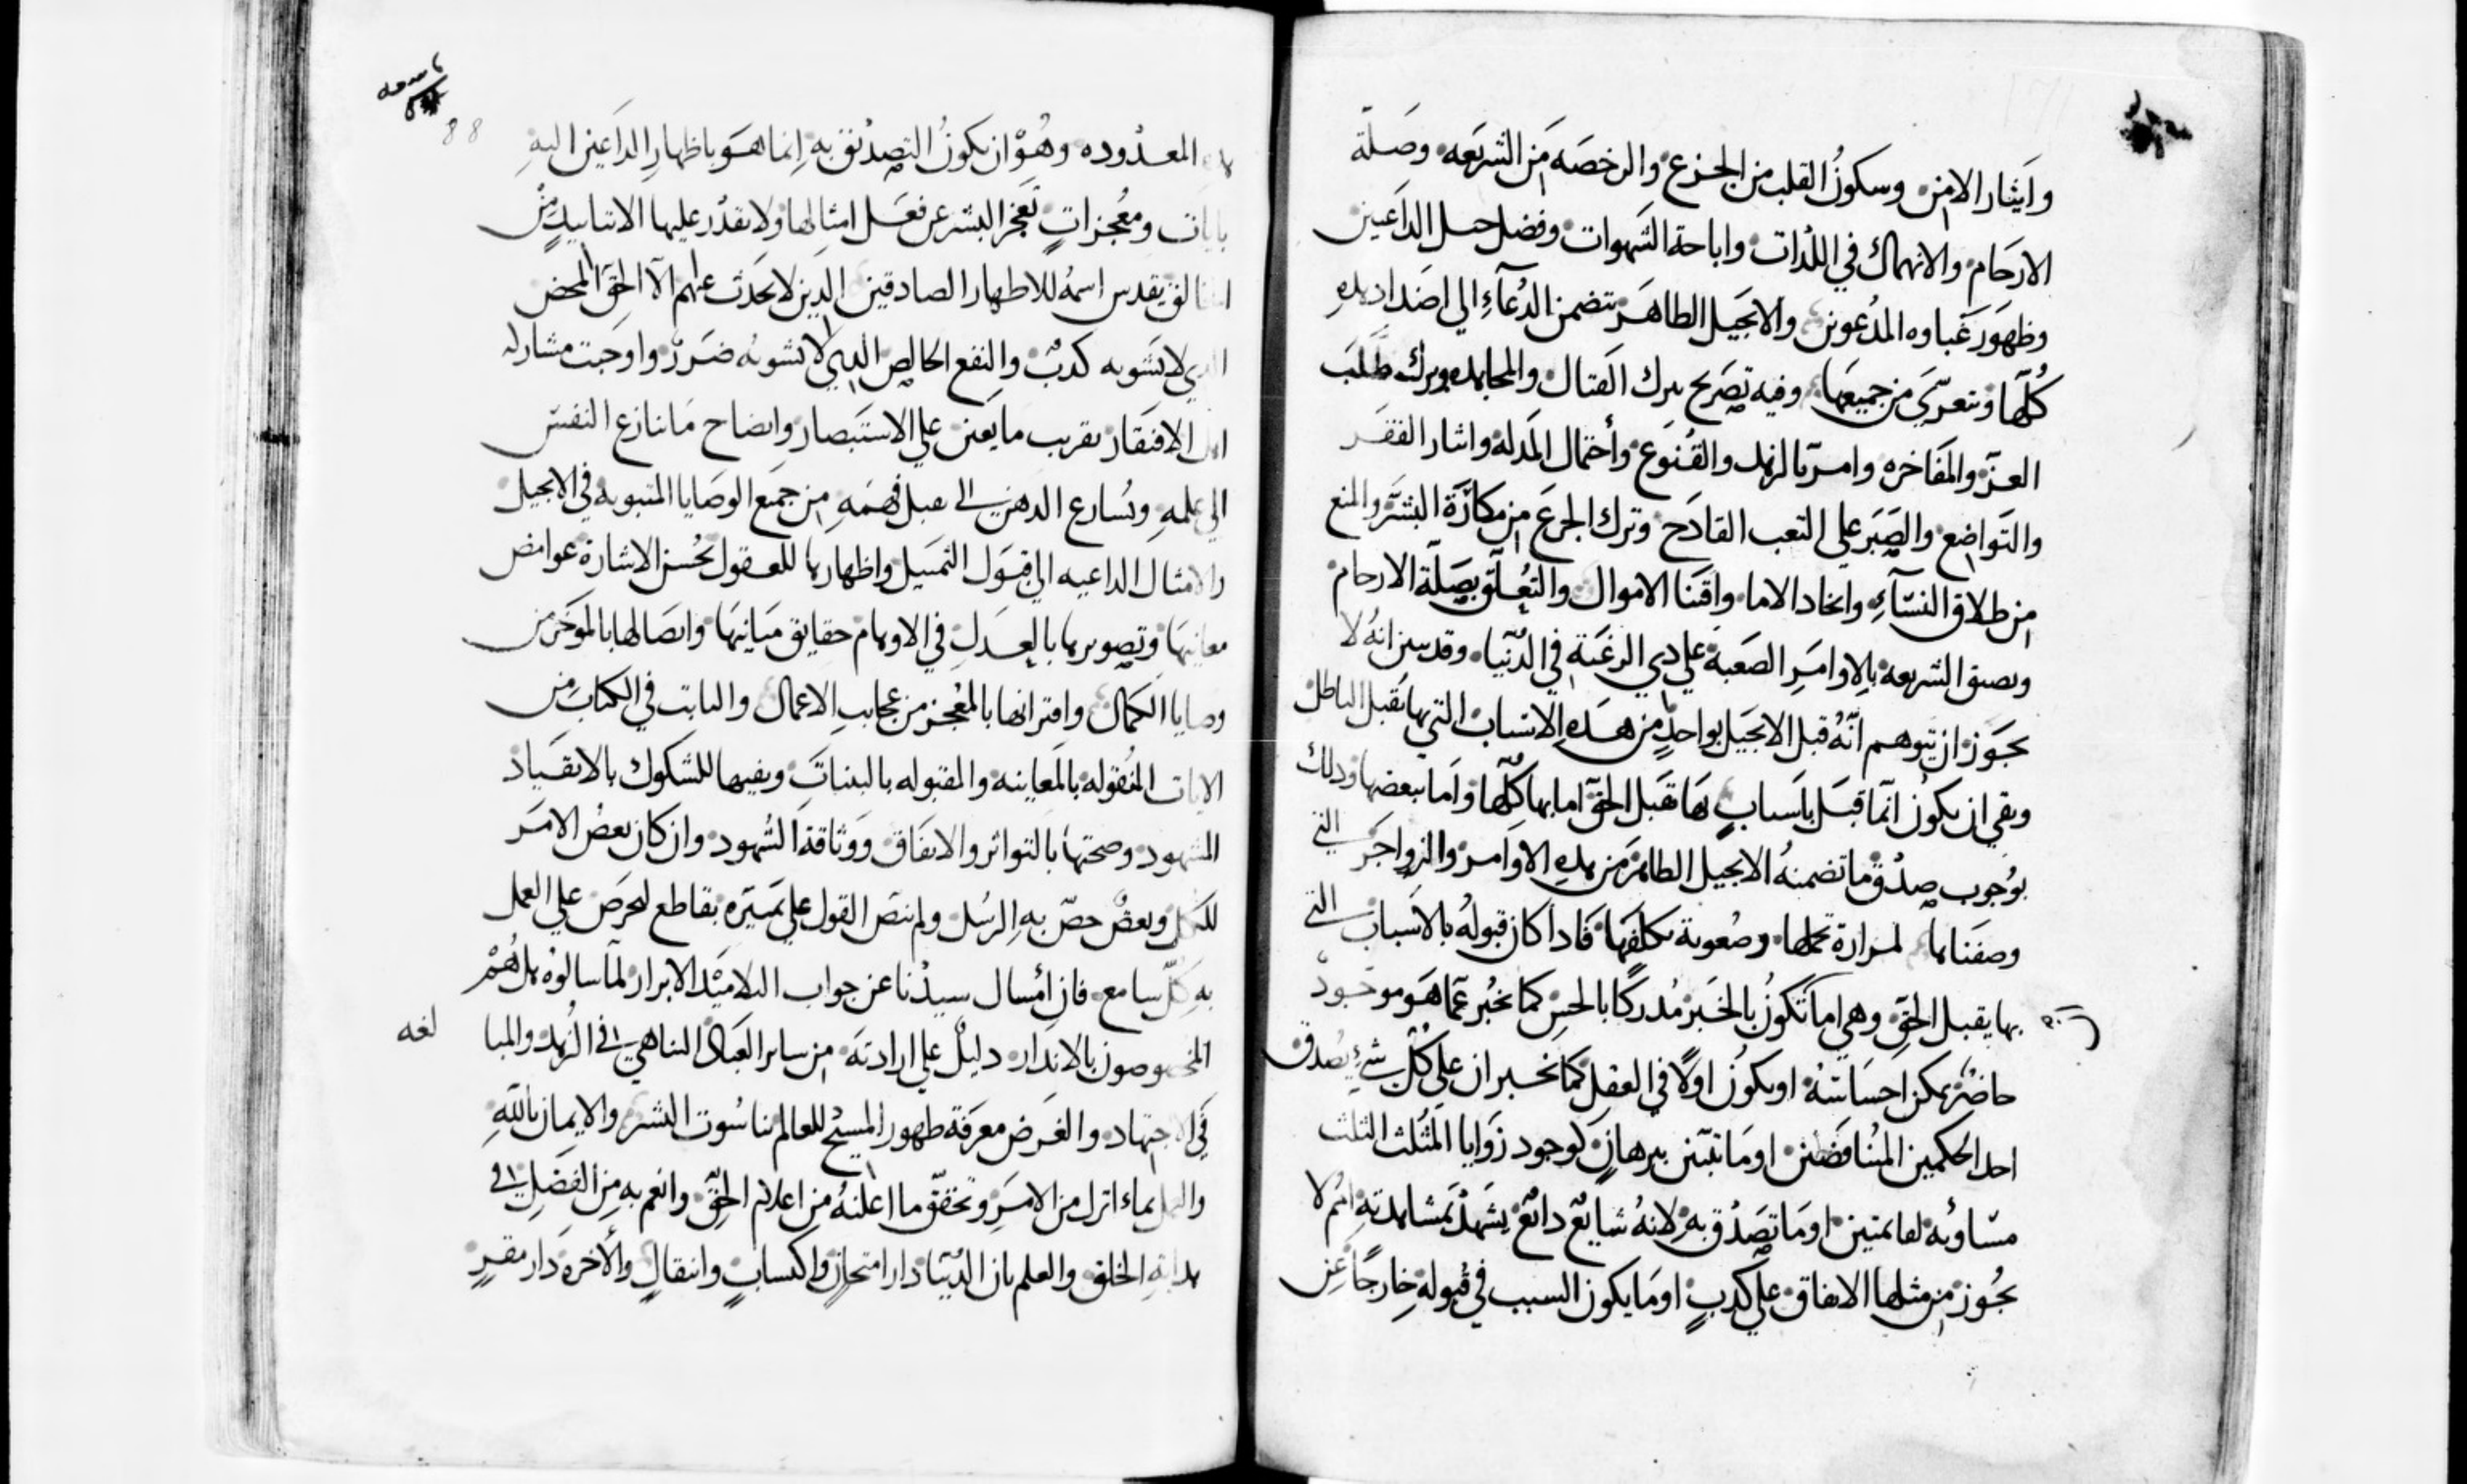 وايثار الامن وسكون القلب من الجزع والرخصه من الشريعه وصلة
الارحام والانهماك في اللذات واباحة الشهوات وفضل حيل الداعين
وظهور غباوه المدعوين والانجيل الطاهر يتضمن الدعاء الي اضداد هذه
كلها ويتعري من جميعها وفيه تصريح بترك القتال والمجاهده وترك طلب
العز والمفاخره وامر بالزهد والقنوع وأحتمال المذله وايثار الفقر
والتواضع والصبر علي التعب القادح وترك الجزع من مكارة البشر والمنع
من طلاق النساء واتخاد الاما واقتنا الاموال والتعلق بصلة الارحام
وبصيق الشريعه بالاوامر الصعبة علي دي الرغبة في الدنيا وقد بين انه لا
يجوز ان يتوهم انه قبل الانجيل بواحد من هده الاسباب التي بها يقبل الباطل
وبقي ان يكون انما قبل باسباب بها يقبل الحق اما بها كلها واما ببعضها ودلك
بوجوب صدق ما تضمنه الانجيل الطاهر من هده الاوامر والزواجر التي
وصفناها لمرارة تحملها وصعوبة تكلفها فادا كان قبوله بالاسباب التي
بها يقبل الحق وهي اما تكون بالخبر مدركا بالحس كما نخبر عما هو موجود
حاضر يمكن احساسه او يكون اولا في العقل كما نخبر ان علي كل شيء يصدق
احد الحكمين المتناقضين او ما تبين ببرهان كوجود زوايا المثلث الثلث
مساويه لقائمتين او ما تصدق به لانه شايع دائع يشهد بمشاهدته امم لا
يجوز من مثلها الاتفاق علي كدب او ما يكون السبب في قبوله خارجا عن
المعدوده وهو ان يكون التصديق به انما هو باظهار الداعين اليه
بايات ومعجزات تعجز البشر عن فعل امثالها ولا يقدر عليها الا بتاييد من
الخالق تقدس اسمه للاطهار الصادقين الدين لا يحدث عنهم الا الحق المحض
الدي لا يشوبه كدب والنفع الخالص الدي لا يشوبه ضرر واوجبت مشاركه
اهل الافتقار تقريب ما يعين علي الاستبصار وايضاح ما تنازع النفس
الي علمه وتسارع الدهن الي قبل فهمه من جميع الوصايا المثبوبه في الانجيل
والامثال الداعيه الي قبول التمثيل واظهارها للعقول بحسن الاشارة غوامض
معانيها وتصويرها بالعدل في الاوهام حقايق مبانيها واتصالها بالموخر من
وصايا الكمال واقترانها بالمعجز من عجايب الاعمال والثابت في الكتاب من
الايات المنقوله بالمعاينه والمقبوله بالبينات ونفيها للشكوك بالانقياد
المشهود وصحتها بالتواتر والاتفاق ووثاقة الشهود وان كان بعض الامر
للكل وبعض خص به الرسل ولم ينص القول علي تميزه بقاطع ليحرص علي العمل
به كل سامع فان أمسال سيدنا عن جواب التلاميد الابرار لما سالوه هل هم
المخصوصون بالاندار دليل علي ارادته من ساير العباد التناهي في الزهد والمبا
لغه
في الاجتهاد والغرض معرفة ظهور المسيح للعالم بناسوت البشر والايمان بالله
والعمل بماء انزل من الامر وتحقق ما اعلنه من اعلام الحق وانعم به من الفضل في
هداية الخلق والعلم بان الدنيا دار امتحان واكتساب وانتقال والاخره دار مقر
88